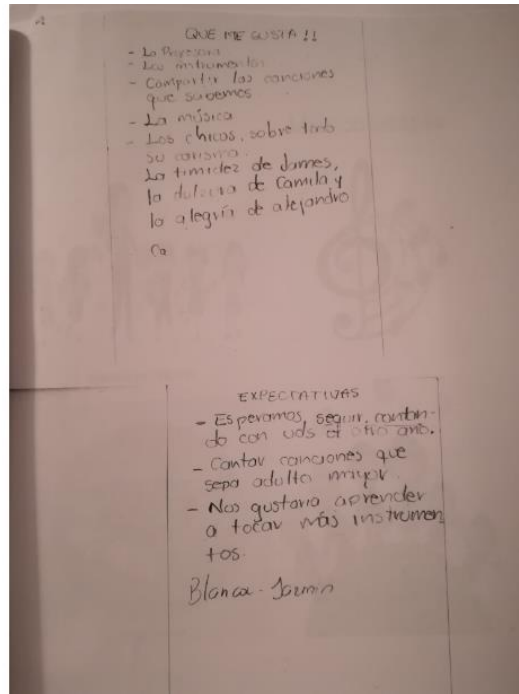 QUE ME GUSTA !!
- La Profesora
- Los instrumentos
- Compartir las canciones
que sabemos
- La música
- Los chicos, sobre todo
su carisma.
La timidez de James,
la dulzura de Camila y
la alegría de alejandro
Ca
EXPECTATIVAS
- Esperamos, seguir, contan-
do con uds el otro año.
- Cantar canciones que
sepa adulto mayor.
- Nos gustaria aprender
a tocar más instrumen
tos.
Blanca - Jazmin